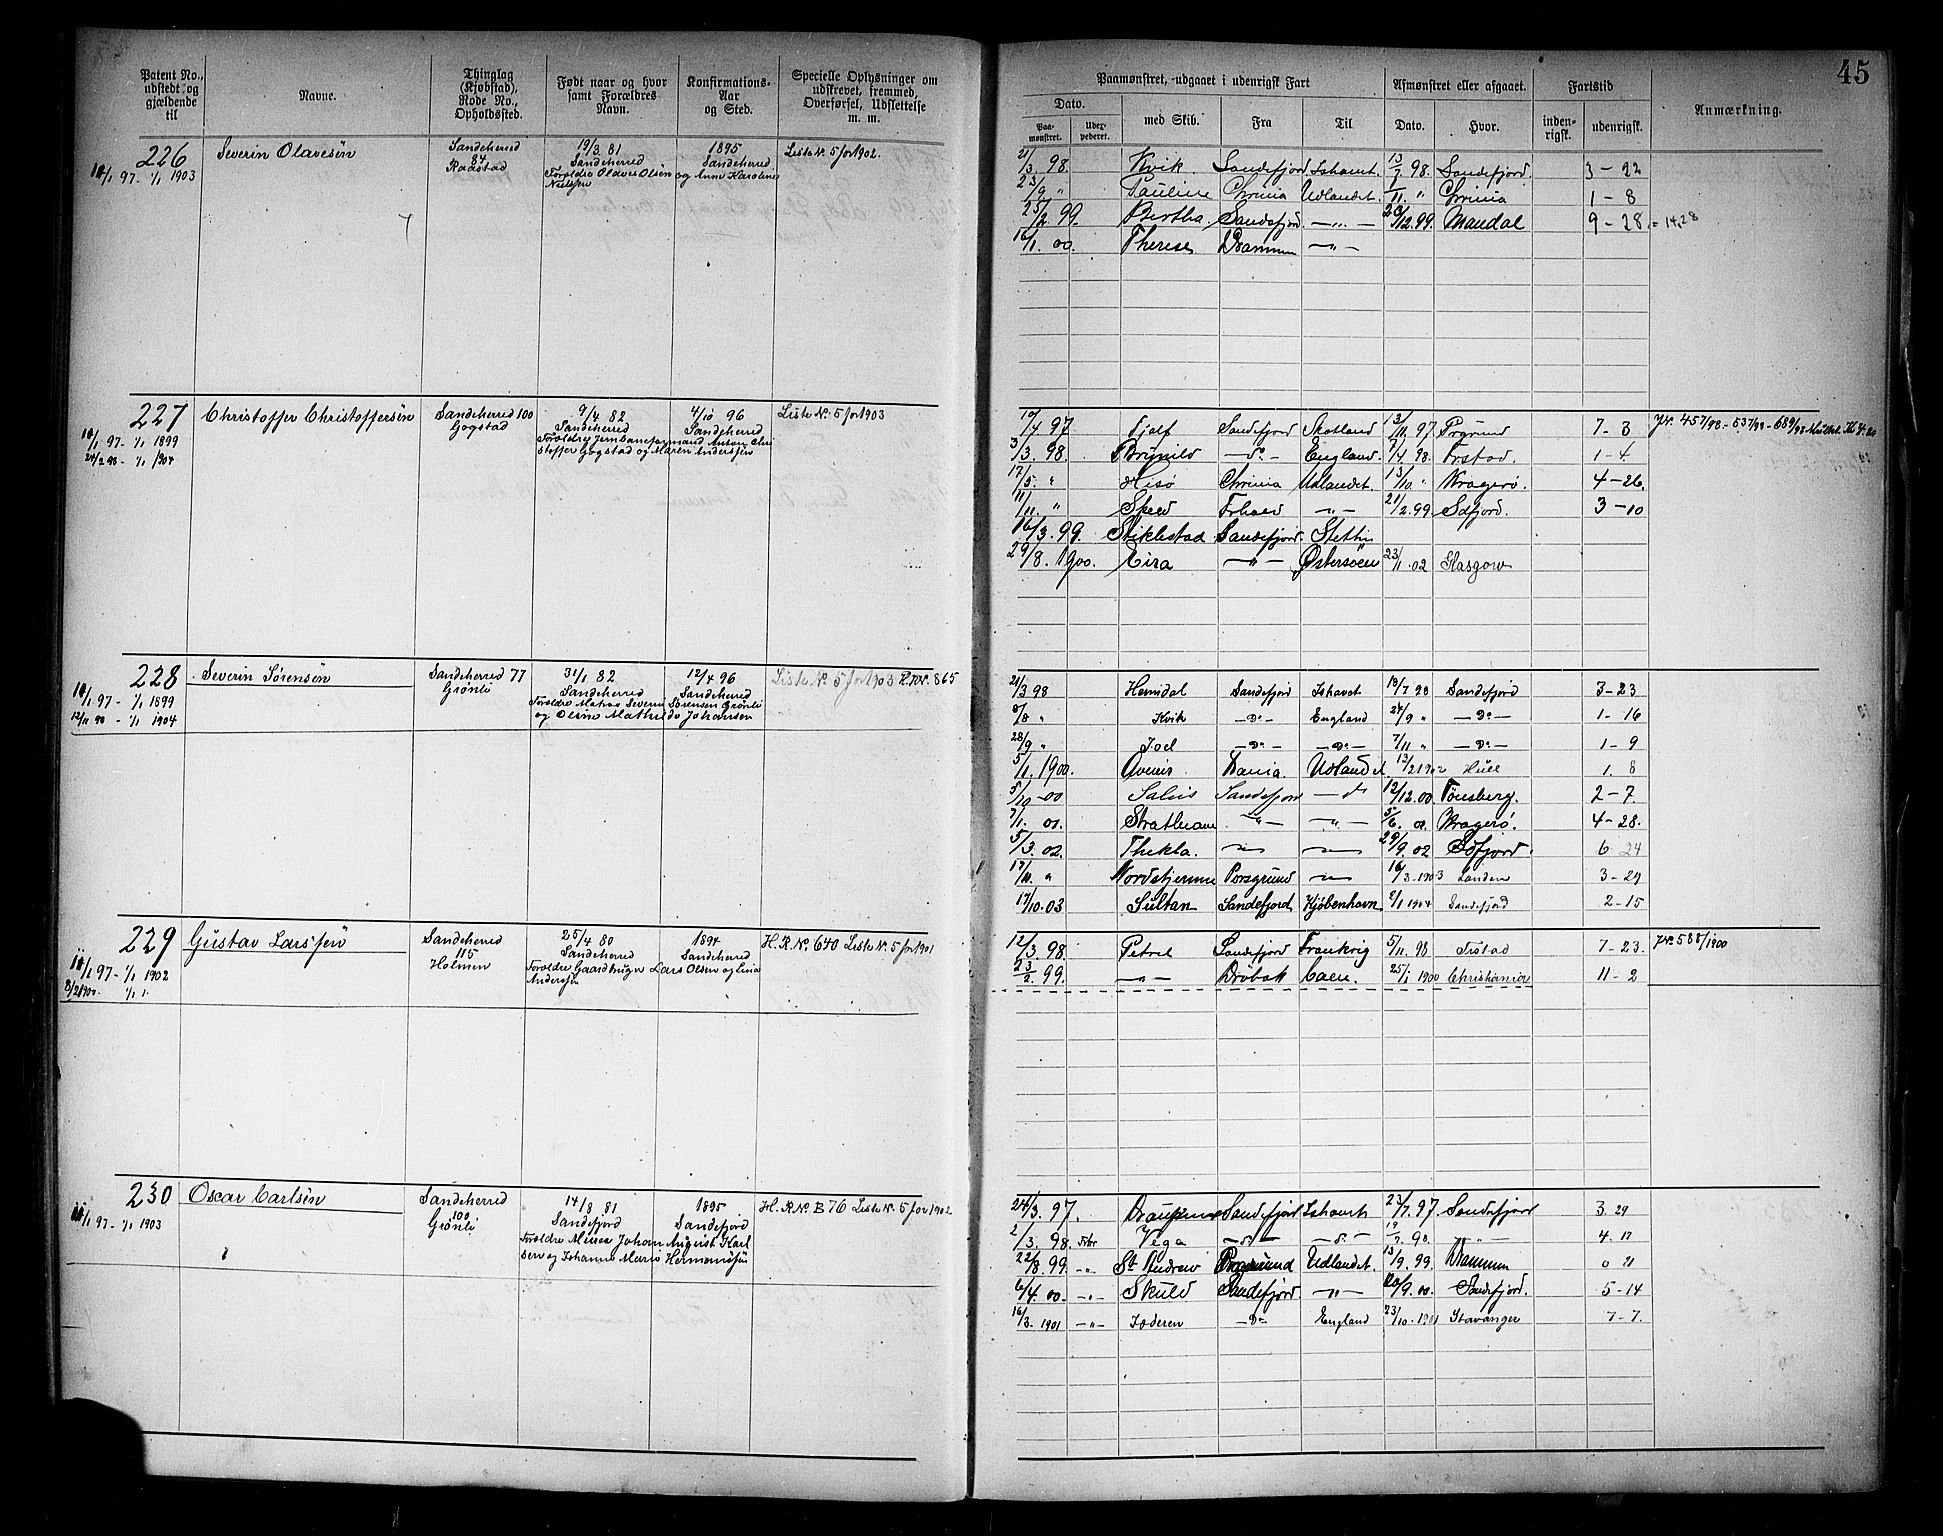 45
Patent No., udstedt og gjældende til
Navne.
Thinglag (Kjøbstad), Rode No., Opholdssted.
Født naar og hvor samt Forældres Navn.
Konfirmations-Aar og Sted.
Specielle Oplysninger om udskrevet, fremmed, Overførsel, Udslettelse m. m.
Paamønstret, udgaaet i udenrigsk Fart
Afmønstret eller afgaaet.
Fartstid
Anmærkning.
Dato.
Paa-mønstret.
med Skib.
Fra
Til
Dato.
Hvor.
inden-rigsk.
udenrigsk.
226 Severin Olavesön Sandeherred 19/3 81 1895 Liste No. 5 for 1902.
84 Sandeherred Sandeherred
1/1 1903 Raastad Forældre Olaves Olsen og Anne Karoline
Nielsen
21/3 98. Kvik Sandefjord Ishavet. 13/7 98. Sandefjord. 3-22
23/9 " Pauline Chrnia Udlandet. 1/11 " Chrnia 1-8
25/2 99. Bertha Sandefjord -"- 20/12 99. Mandal 9-28 = 14,28
16/1 00. Therese Drammen -"-
227 Christoffer Christoffersön Sandeherred 100 9/4 82 4/10 96 Liste No. 5 for 1903
Gogstad Sandeherred Sandeherred
97- 1/1 1899 Forældre Jernbaneformand Anton Chri
24/2 98- 1/1 1904 stoffer Gogstad og Maren Anderssen
19/4 97 Fjalf Sandefjord Skotland 13/11 97 Prgrund 7-3 JNo. 457/98 - 537/98 - 689/98
3/3 98. Brynild -do- England. 7/4 98. Frstad. 1-4
17/5 " Hisö Chrnia Udlandet. 13/10 " Kragerö. 4-26.
11/11 " Skeed Frhald -"- 21/2 99. Sdfjord. 3-10
16/3 99. Stiklestad Sandefjord Stettin
29/8 1900. Eira -"- Østersøen 23/11 02 Glasgow
228 Severin Sörensen Sandeherred 77 31/1 82 12/4 96 Liste No. 5 for 1903 865
Grönli Sandeherred Sandeherred
97- 1/1 1899 Forældre Matros Severin Sörensen Grönli
12/11 98 - 1/1 1904 og Oline Mathilde Johansen
21/3 98 Heimdal Sandefjord Ishavet 18/7 98 Sandefjord 3-23
8/8 " Kvik -Do- England 24/9 " -Do- 1-16
28/9 " Joel -Do- -Do- 7/11 " -Do- 1-9
5/1 1900. Avenir Udlandet Hull 1. 8
5/10 -00 Salvis Sandefjord -do 12/12 00 Tönsberg. 2-7.
7/1 01. -"- -"- 5/6 02 Kragerö. 4-28.
5/3 02. Thekla. 29/9 02 Sdfjord. 6-24
17/11 " Nordstjernen Porsgrund 16/3-1903 London 3-29
17/10-03 Sultan Sandefjord Kjöbenhavn 2/1 1904 Sandefjord 2-15
229 Gustav Larssen Sandeherred 25/4 80 1894 H.R.No. 640 Liste No. 5 for 1901
115 Sandeherred Sandeherred
97- 1/1 1902 Holmen Forældre Gaardbruger Lars Olsen og Lina
Anderssen
12/3 98. Petrel Sandefjord Frankrig 5/11 98 Frstad 7-23. JNo 588/1900
23/2 99. -"- Dröbak Caen. 25/1 1900 Christiania 11-2
230 Oscar Carlsen Sandeherred 14/8 81 1895 H.R.No B76 Liste No. 5 for 1902
100 Sandefjord Sandefjord
97- 1/1 1903 Grönli Forældre Murer Johan August Karl
sen og Johanne Marie Hermansen
24/3 97. Draupner Sandefjord Ishavet 23/7 97 Sandefjord 3. 29
2/3 98. Vega -do- -do- 19/7 98. -"- 4. 17
22/8 99. -"- St Andrew Prsgrund Udlandet. 13/9 99. Drammen 0 21
6/4 00. -"- Skuld Sandefjord -"- 20/9 00. Sandefjord. 5-14
16/3-1901 -"- Jæderen -Do- England 23/10-1901 Stavanger 7-7.